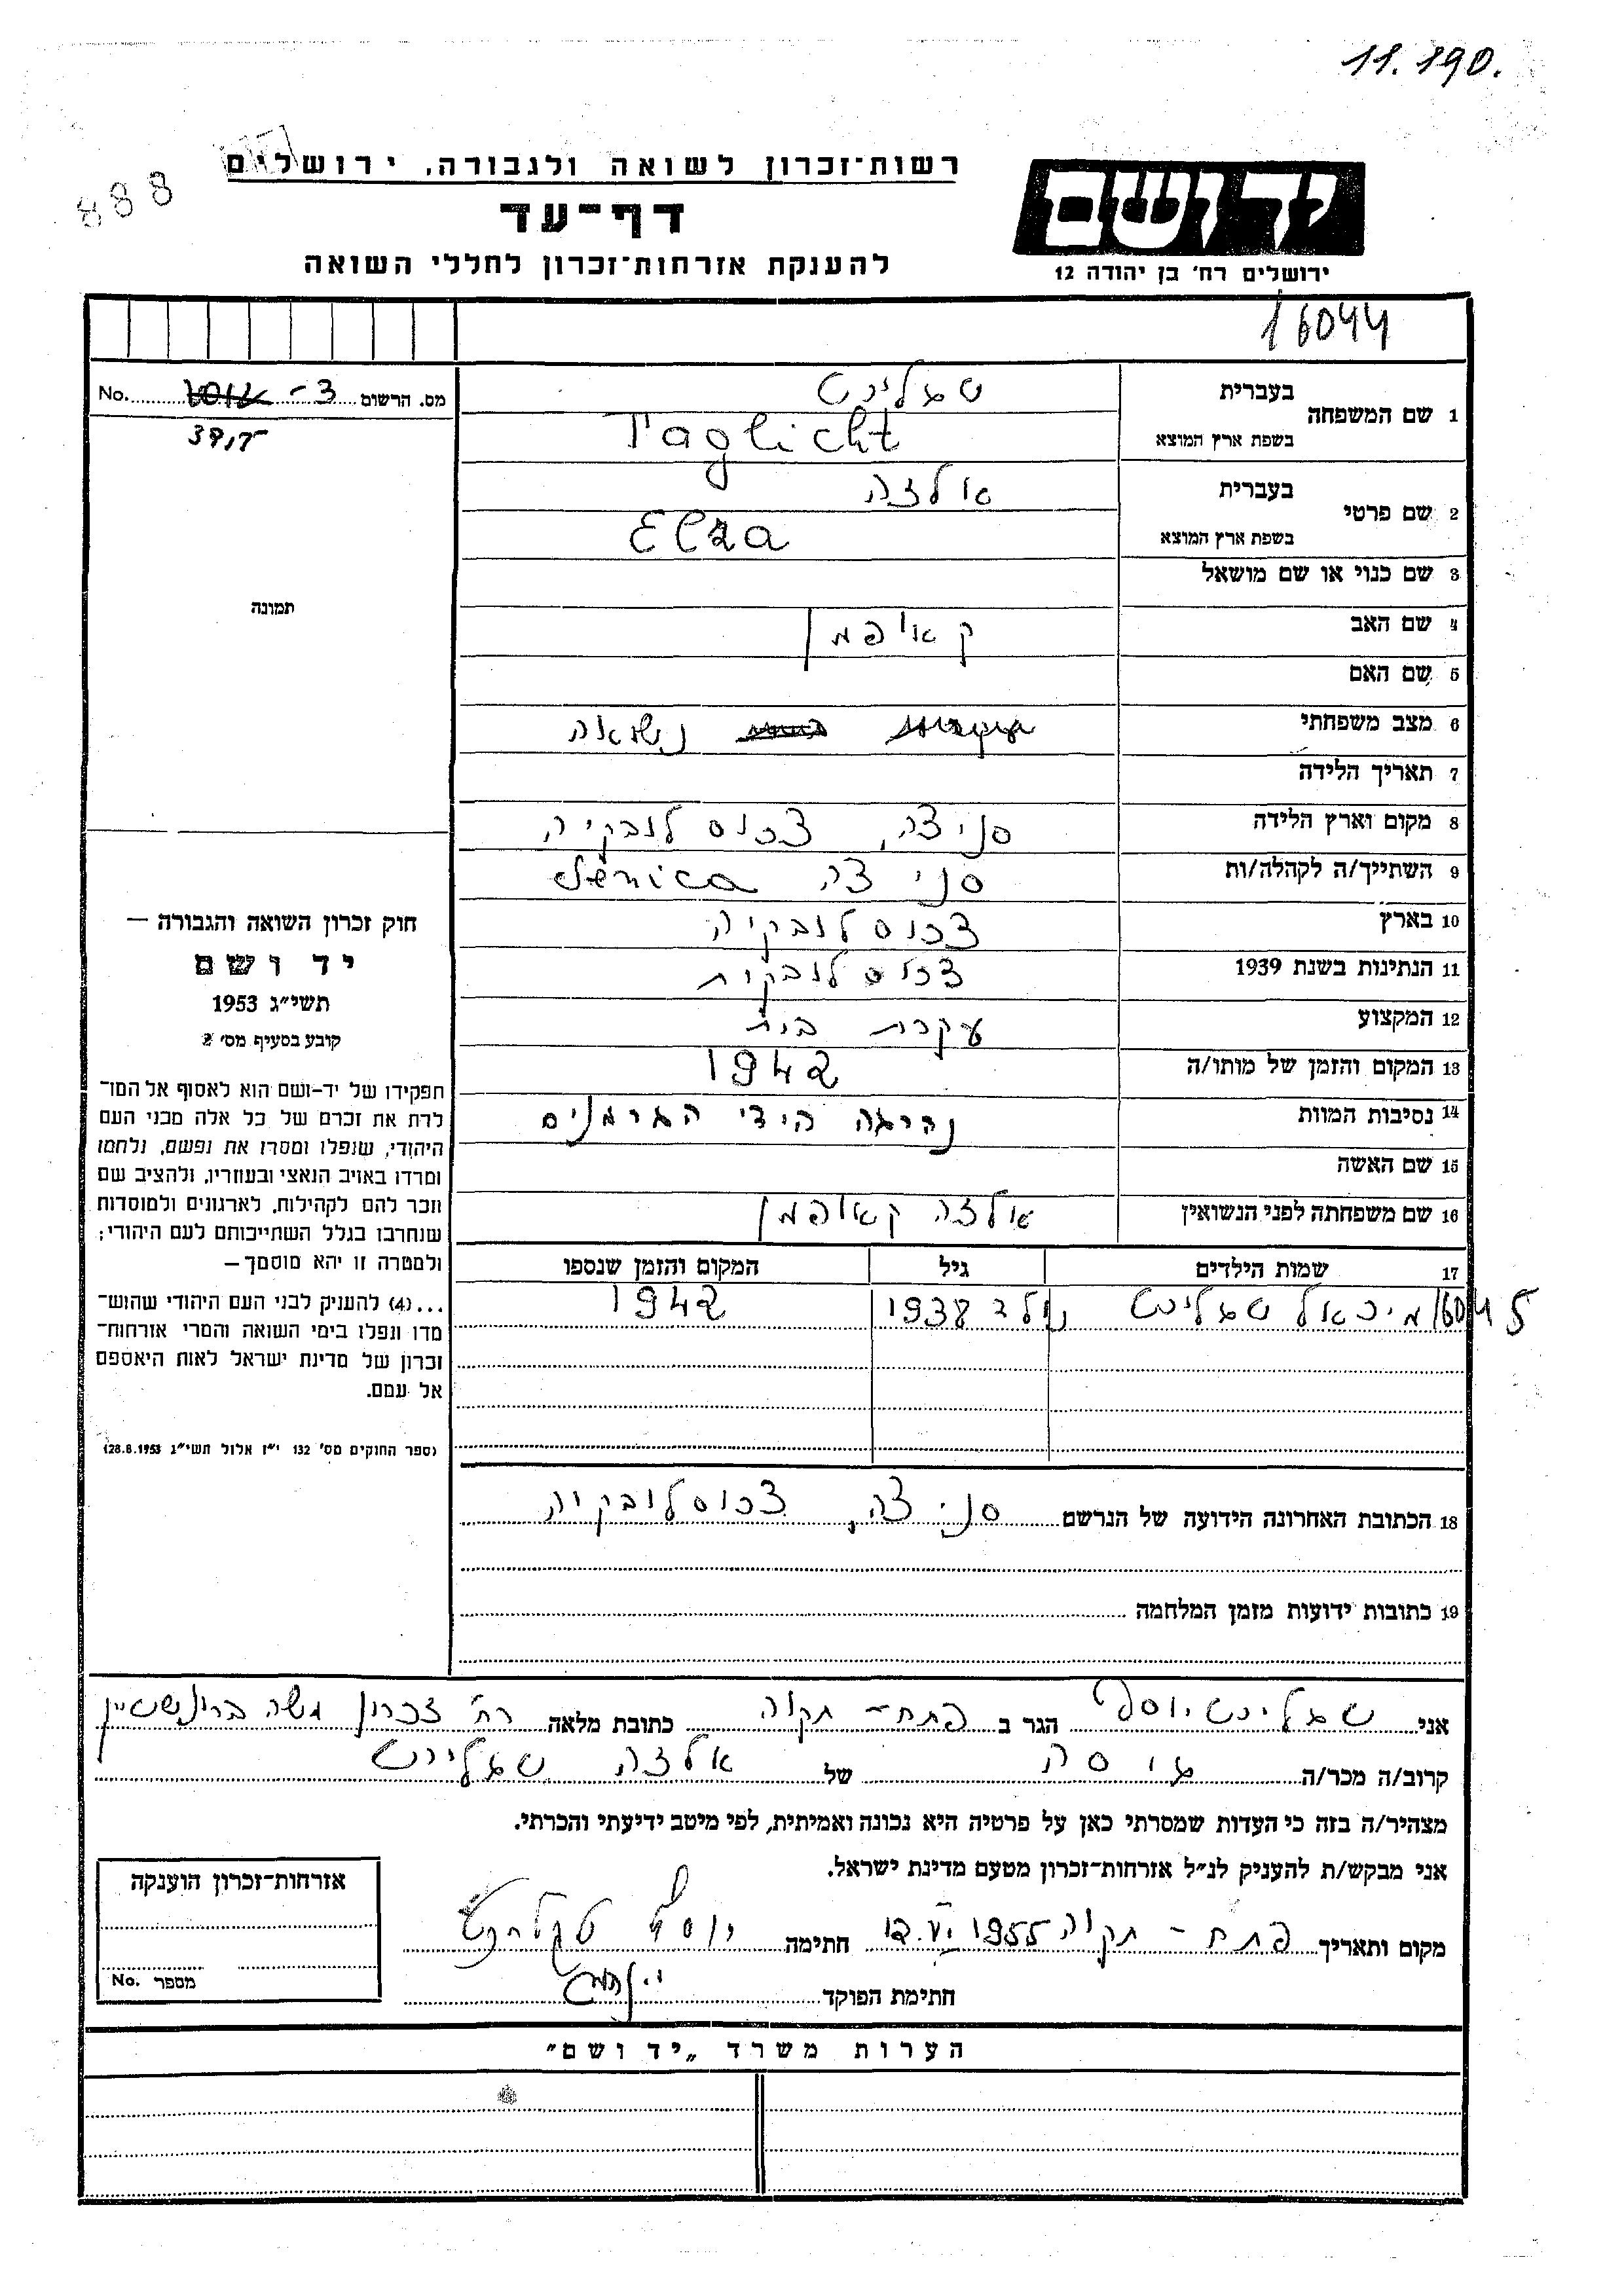 11.190.
888
רשות־זכרון לשואה ולגבורה, ירושלים
דף־עד
להענקת אזרחות־זכרון לחללי השואה
יד ושם
ירושלים רח' בן יהודה 12
16044
1 שם המשפחה
בעברית טגליכט
בשפת ארץ המוצא Taglicht
2 שם פרטי
בעברית אולזה
בשפת ארץ המוצא Elza
3 שם כנוי או שם מושאל
4 שם האב קאופמן
5 שם האם
6 מצב משפחתי נישואה
7 תאריך הלידה
8 מקום וארץ הלידה סניצה, צכוסלובקיה
9 השתייך/ה לקהלה/ות סניצה Senica
10 בארץ צכוסלובקיה
11 הנתינות בשנת 1939 צכוסלובקית
12 המקצוע עקרת בית
13 המקום והזמן של מותו/ה 1942
14 נסיבות המוות נהרגה הידי הגרמנים
15 שם האשה
16 שם משפחתה לפני הנשואין אולזה קאופמן
17 שמות הילדים גיל המקום והזמן שנספו
16045 מיכאל טגליכט נולד 1938 1942
18 הכתובת האחרונה הידועה של הנרשם סניצה, צכוסלובקיה
19 כתובות ידועות מזמן המלחמה
מס. הרשום 3- No.
תמונה
חוק זכרון השואה והגבורה —
יד ושם
תשי״ג 1953
קובע בסעיף מס' 2
תפקידו של יד–ושם הוא לאסוף אל המו־
לדת את זכרם של כל אלה מבני העם
היהודי, שנפלו ומסרו את נפשם, נלחמו
ומרדו באויב הנאצי ובעוזריו, ולהציב שם
וזכר להם לקהילות, לארגונים ולמוסדות
שנחרבו בגלל השתייכותם לעם היהודי;
ולמטרה זו יהא מוסמך —
...(4) להענקיק לבני העם היהודי שהוש־
מדו ונפלו בימי השואה והמרי אזרחות־
זכרון של מדינת ישראל לאות היאספם
אל עמם.
(ספר החוקים מס' 132 י״ז אלול תשי״ג 28.8.1953)
אני טגליכט יוסף הגר ב פתח – תקוה כתובת מלאה רח' זכרון משה ברונשטיין
קרוב/ה מכר/ה גיסה של אלזה טגליכט
מצהיר/ה בזה כי העדות שמסרתי כאן על פרטיה היא נכונה ואמיתית, לפי מיטב ידיעתי והכרתי.
אני מבקש/ת להעניק לנ״ל אזרחות־זכרון מטעם מדינת ישראל.
מקום ותאריך פתח – תקוה 12.VI.1955 חתימה יוסף טגליכט
חתימת הפוקד
אזרחות־זכרון הוענקה
מספר No.
הערות משרד „יד ושם״